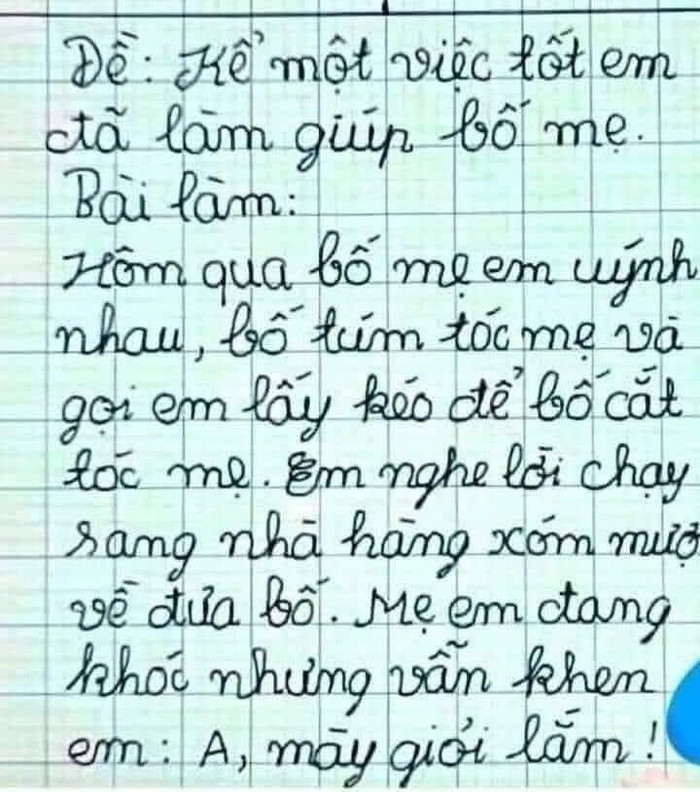 Đề: Kể một việc tốt em
đã làm giúp bố mẹ.
Bài làm:
Hôm qua bố mẹ em uýnh
nhau, bố túm tóc mẹ và
gọi em lấy kéo để bố cắt
tóc mẹ. Em nghe lời chạy
sang nhà hàng xóm mượ
về đưa bố. Mẹ em đang
khóc nhưng vẫn khen
em: A, mày giỏi lắm!